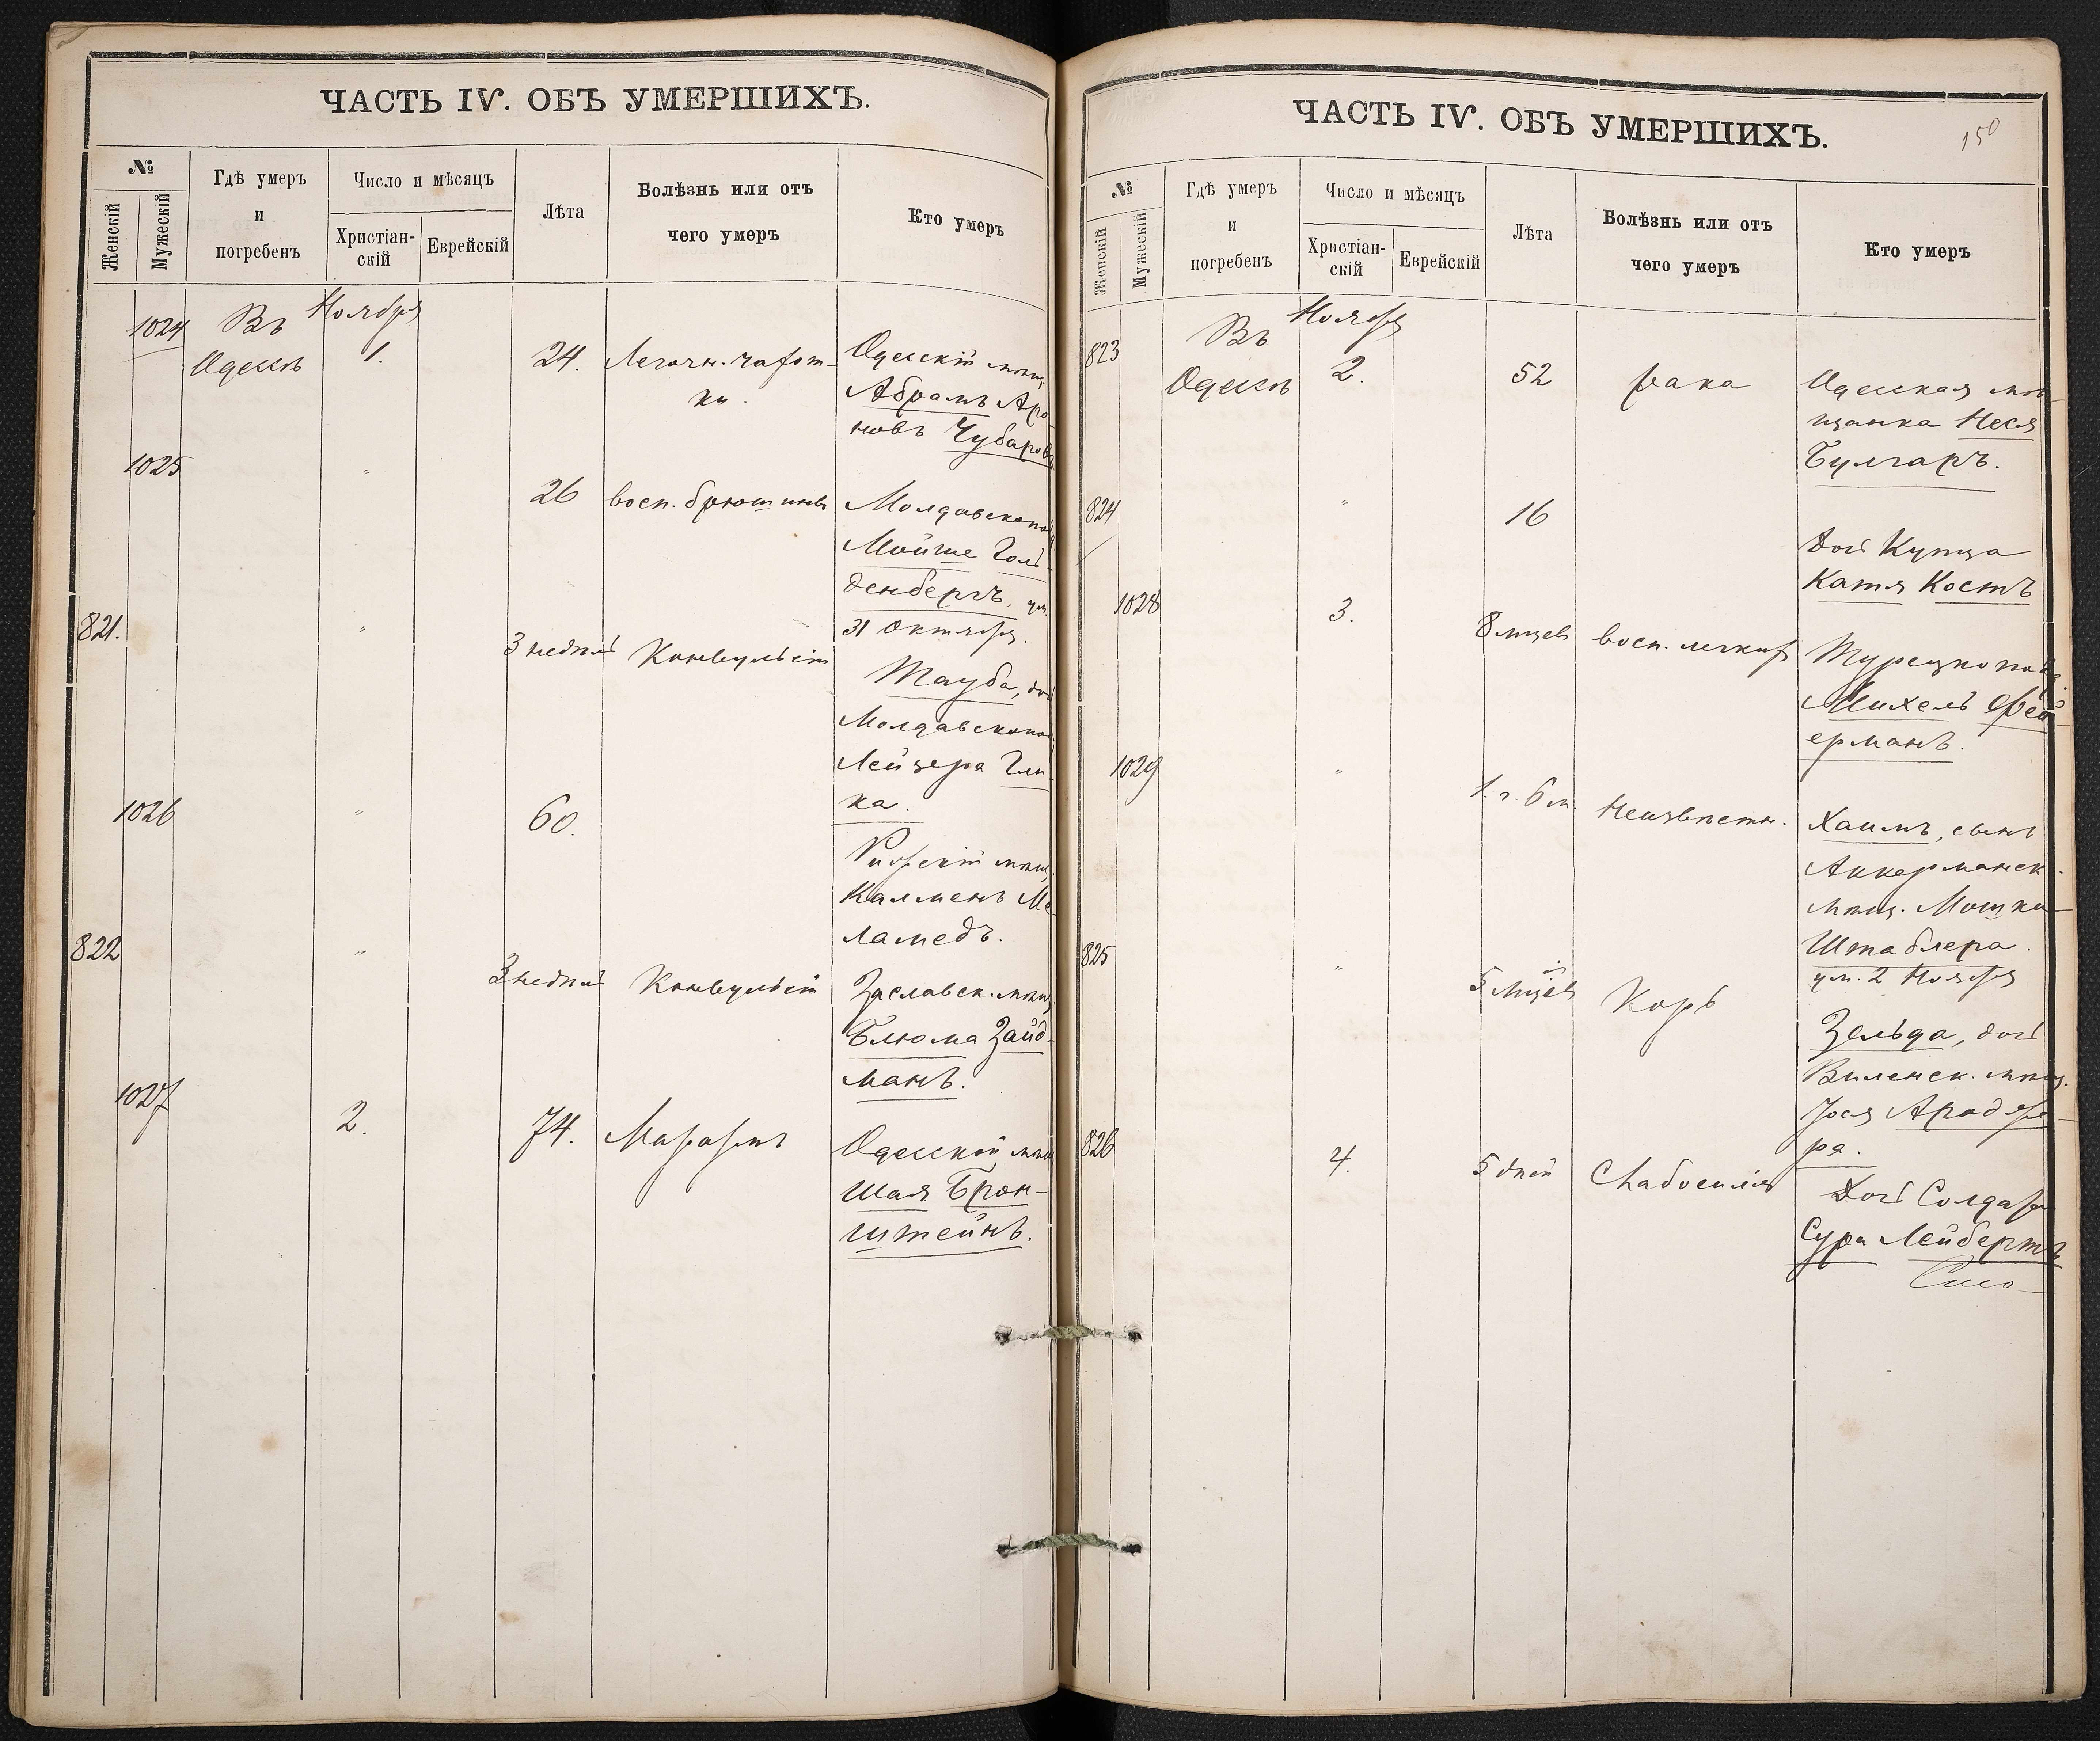 ЧАСТЬ IV. ОБЪ УМЕРШИХЪ.
№
Женскій
Мужескій
Гдѣ умеръ
и
погребенъ
Число и мѣсяцъ
Христіан-
скій
Еврейскій
Лѣта
Болѣзнь или отъ
чего умеръ
Кто умеръ
1024 Въ Ноября
Одессѣ 1. 24. Легочн. чахот-
ки.
Одесскій мѣщ.
Абрамъ Аро-
новъ Чубаровъ
1025 " 26 восп. брюшины
Молдавскопод
Мойше Голь-
денбергъ, ум.
31 Октября.
821. " 3 недѣль Конвульсіи
Тауба, дочь
Молдавскопод
Лейзера Гли-
ка.
1026 " 60.
мѣщ.
Калменъ Ме-
ламедъ.
822 " 3 недѣль Конвульсіи
Заславск. мѣщ.
Блюма Зайд-
манъ.
1027 2. 74. Маразмъ
Одесской мѣщ
Шая Брон-
штейнъ.
ЧАСТЬ IV. ОБЪ УМЕРШИХЪ.
150
№
Женскій
Мужескій
Гдѣ умеръ
и
погребенъ
Число и мѣсяцъ
Христіан-
скій
Еврейскій
Лѣта
Болѣзнь или отъ
чего умеръ
Кто умеръ
823 Въ Ноября
Одессѣ 2. 52 рака
Одесская мѣ-
щанка Неся
Булгаръ.
824 " 16
Дочь Купца
Катя Костъ
1028 3. 8 мцевъ восп. легкихъ
Турецкопод
Михель Фей-
ерманъ.
1029 " 1. г. 6 м. Неизвѣстн.
Хаимъ, сынъ
Аккерманск.
мѣщ. Мошка
Штаблера.
ум. 2 Ноября
825 " 5 мцевъ Корь
Зельда, дочь
Виленск. мѣщ.
Іося
ра.
826 4. 5 дней Слабосилія
Дочь Солдата
Сура Лейбертъ